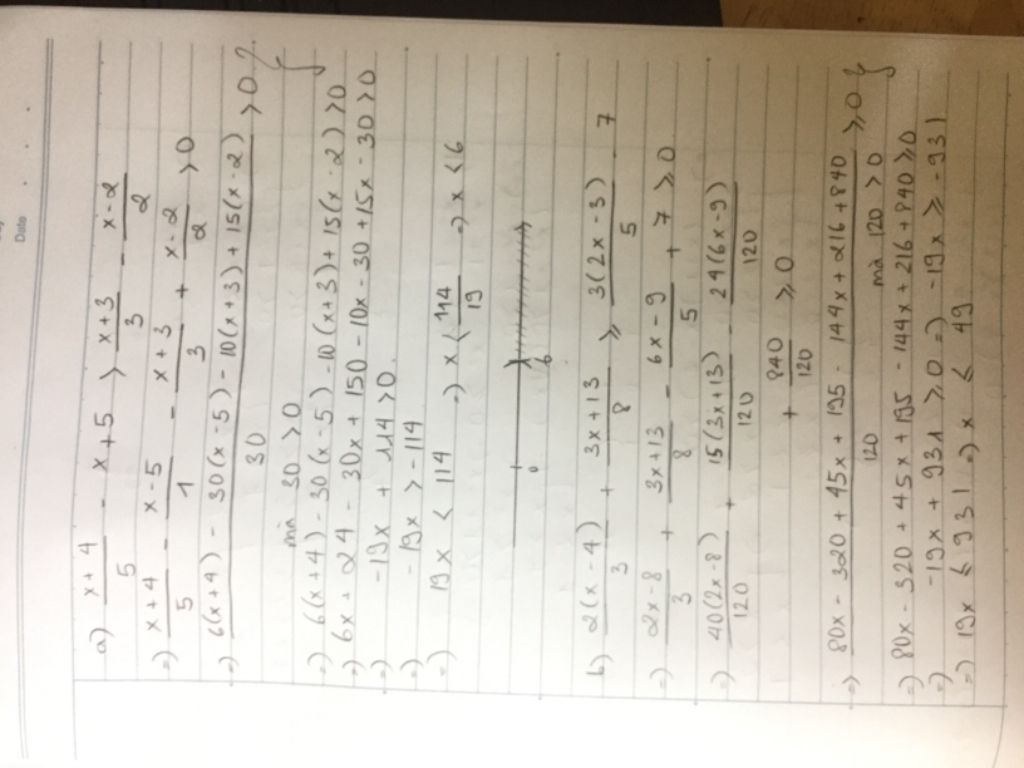 Date
a) (x+4)/5 - x + 5 > (x+3)/3 - (x-2)/2
=) (x+4)/5 - (x-5)/1 - (x+3)/3 + (x-2)/2 > 0
=) (6(x+4) - 30(x-5) - 10(x+3) + 15(x-2))/30 > 0
mà 30 > 0
=) 6(x+4) - 30(x-5) - 10(x+3) + 15(x-2) > 0
=) 6x + 24 - 30x + 150 - 10x - 30 + 15x - 30 > 0
=) -19x + 114 > 0
=) -19x > -114
=) 19x < 114 =) x < 114/19 =) x < 6
0 6
b) 2(x-4)/3 + (3x+13)/8 ≥ 3(2x-3)/5 - 7
=) (2x-8)/3 + (3x+13)/8 - (6x-9)/5 + 7 ≥ 0
=) 40(2x-8)/120 + 15(3x+13)/120 - 24(6x-9)/120
+ 840/120 ≥ 0
=) (80x - 320 + 45x + 195 - 144x + 216 + 840)/120 ≥ 0
mà 120 > 0
=) 80x - 320 + 45x + 195 - 144x + 216 + 840 ≥ 0
=) -19x + 931 ≥ 0 =) -19x ≥ -931
=) 19x ≤ 931 =) x ≤ 49